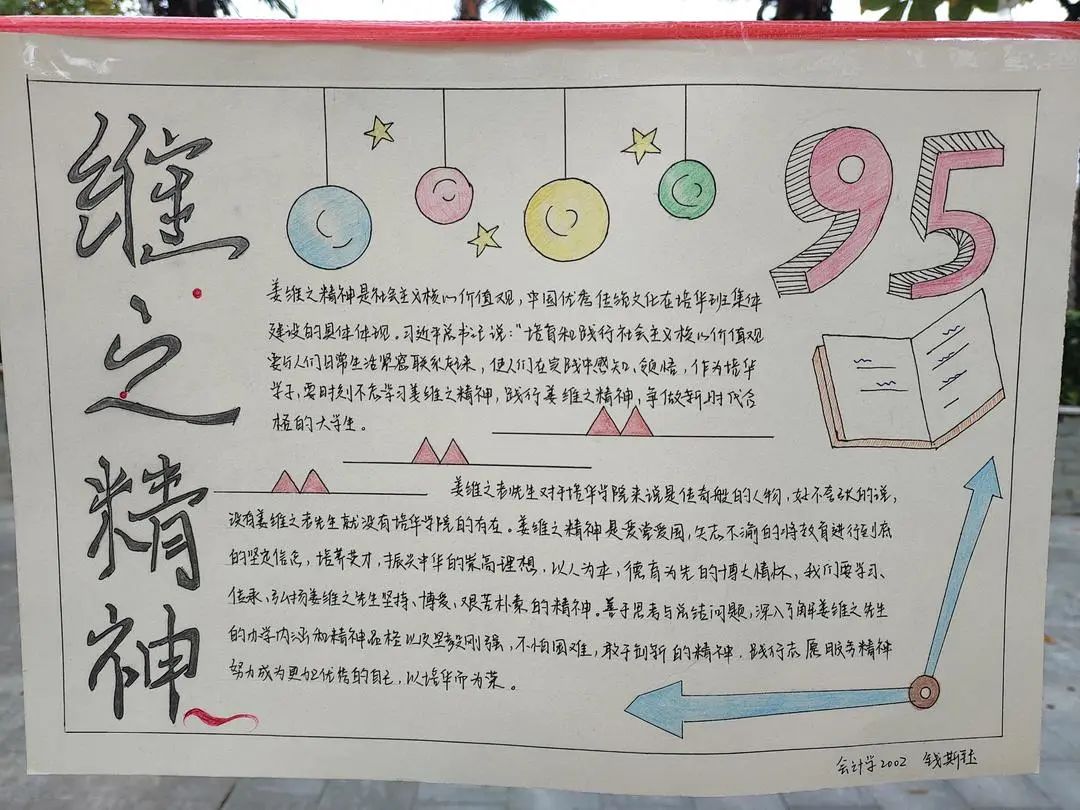 维之精神
95
姜维之精神是社会主义核心价值观，中国优秀传统文化在培华班集体
建设的具体体现。习近平总书记说："培育和践行社会主义核心价值观
要与人们日常生活紧密联系起来，使人们在实践中感知、领悟，作为培华
学子，要时刻不忘学习姜维之精神，践行姜维之精神，争做新时代合
格的大学生。
姜维之老先生对于培华学院来说是传奇般的人物，好不夸张的说，
没有姜维之老先生就没有培华学院的存在。姜维之精神是爱党爱国，矢志不渝的将教育进行到底
的坚定信念，培养英才，振兴中华的崇高理想，以人为本，德育为先的博大情怀，我们要学习、
传承、弘扬姜维之先生坚持、博爱、艰苦朴素的精神。善于思考与总结问题，深入了解姜维之先生
的办学内涵和精神品格以及坚毅刚强，不怕困难，敢于创新的精神，践行志愿服务精神
努力成为更加优秀的自己，以培华而为荣。
会计学2002 钱斯钰